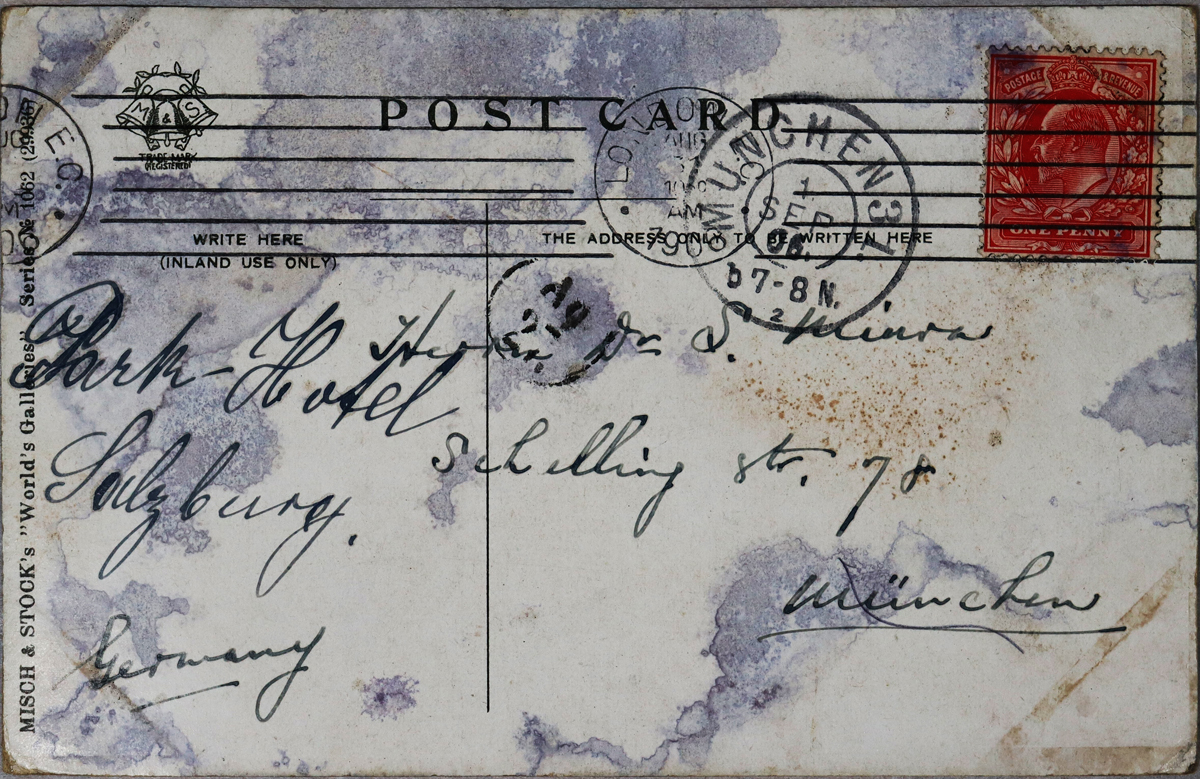 POST CARD
M & S
TRADE MARK
REGISTERED
E.C.
LONDON
AUG
AM
MÜNCHEN 31
1
SEP
06.
7-8 N.
2
POSTAGE & REVENUE
ONE PENNY
WRITE HERE
(INLAND USE ONLY)
THE ADDRESS ONLY TO BE WRITTEN HERE
Herrn Dr S. Miura
Schelling str. 78
München
Park-Hotel
Salzburg.
Germany
MISCH & STOCK's "World's Galleries" Series № 1062